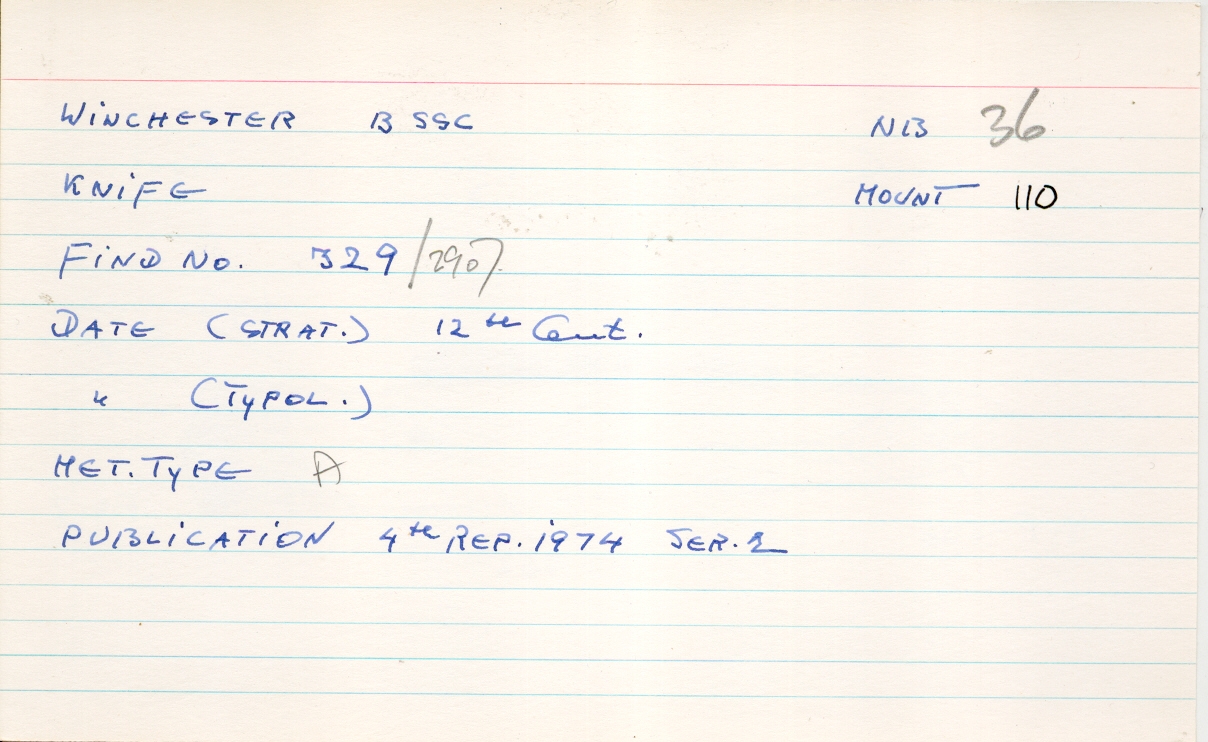 WINCHESTER B SSC NB 36
KNIFE MOUNT 110
FIND No. 329/2907
DATE (STRAT.) 12th Cent.
" (TYPOL.)
MET. TYPE A
PUBLICATION 4th REP. 1974 SER. 2